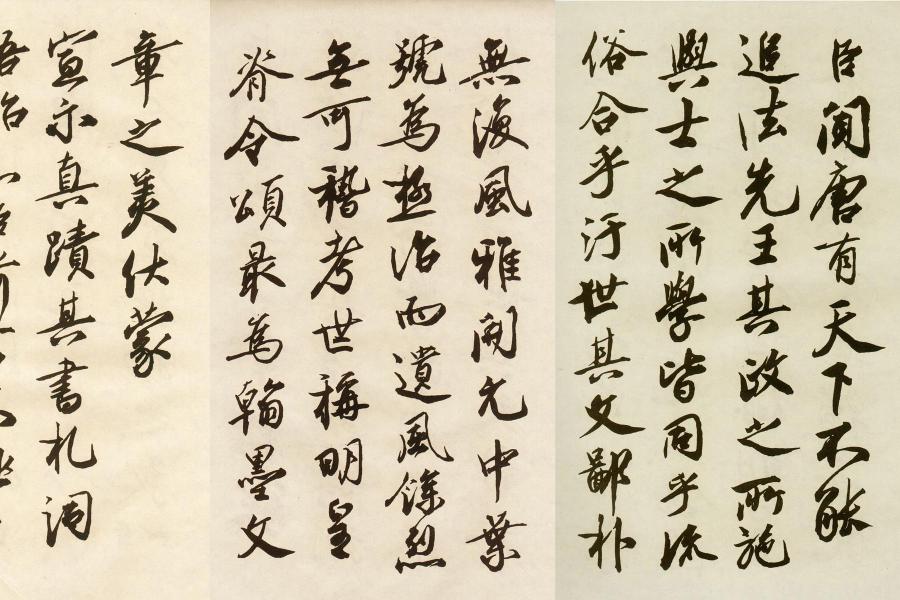 臣聞唐有天下不能
追法先王其政之所施
與士之所學皆同乎流
俗合乎汙世其文鄙朴
無復風雅開元中業
號為極治而遺風餘烈
無可稽考世稱明皇
脊令頌最為翰墨文
章之美伏蒙
宣示真蹟其書札詞